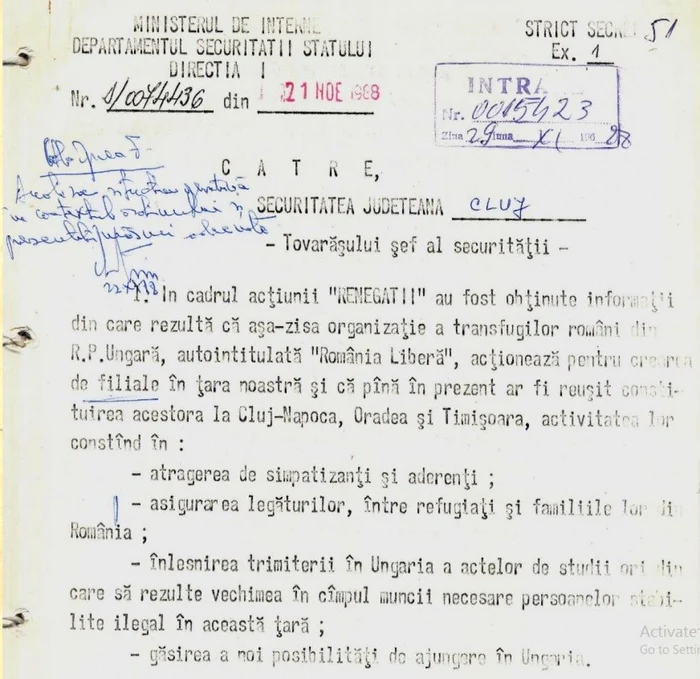 MINISTERUL DE INTERNE
DEPARTAMENTUL SECURITATII STATULUI
DIRECTIA I
Nr. 1/0074436 din 21 NOE 1988
STRICT SECRET 51
Ex. 1
INTRA
Nr. 0015423
Ziua 29 luna XI 196 88
C A T R E,
SECURITATEA JUDETEANA CLUJ
- Tovarăşului şef al securităţii -
1. In cadrul acţiunii "RENEGATII" au fost obţinute informaţii
din care rezultă că aşa-zisa organizaţie a transfugilor români din
R.P.Ungară, autointitulată "România Liberă", acţionează pentru crearea
de filiale în ţara noastră şi că pînă în prezent ar fi reuşit consti-
tuirea acestora la Cluj-Napoca, Oradea şi Timişoara, activitatea lor
constînd în :
- atragerea de simpatizanţi şi aderenţi ;
- asigurarea legăturilor, între refugiaţi şi familiile lor din
România ;
- înlesnirea trimiterii în Ungaria a actelor de studii ori din
care să rezulte vechimea în cîmpul muncii necesare persoanelor stabi-
lite ilegal în această ţară ;
- găsirea a noi posibilităţi de ajungere în Ungaria.
Activate
Go to Settin